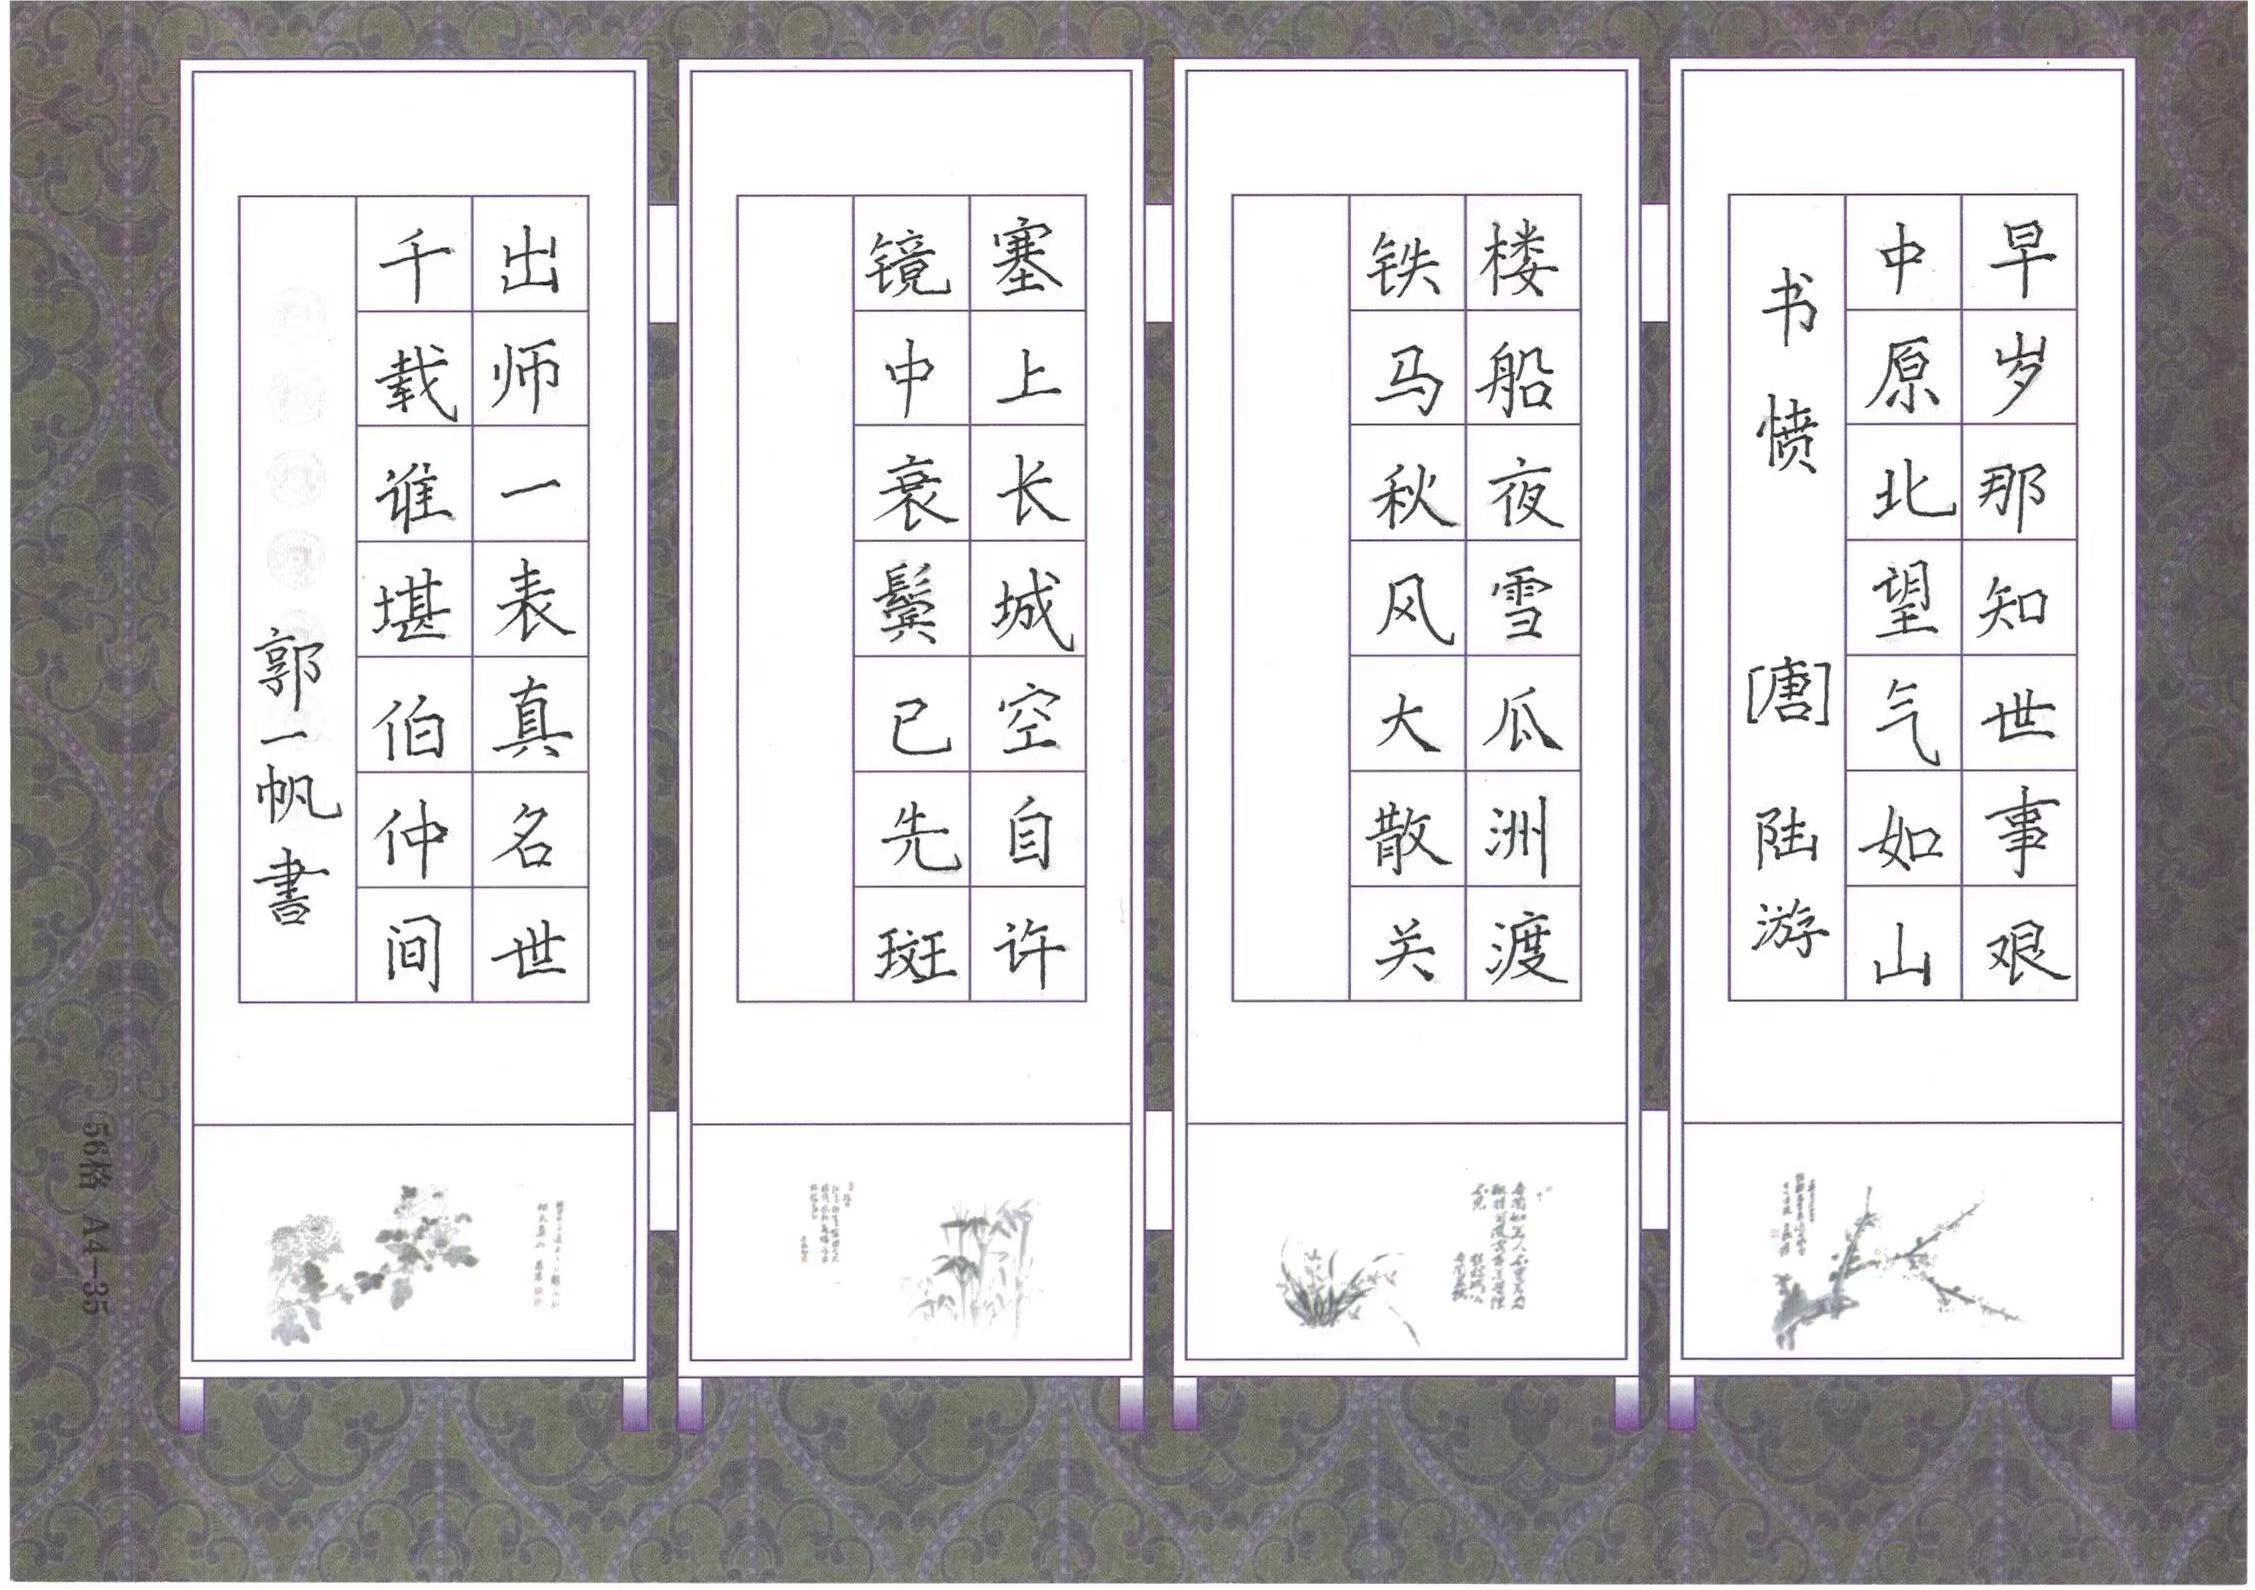 早岁那知世事艰
中原北望气如山
书愤 [唐] 陆游
楼船夜雪瓜洲渡
铁马秋风大散关
塞上长城空自许
镜中衰鬓已先斑
出师一表真名世
千载谁堪伯仲间
郭一帆書
56格 A4—35